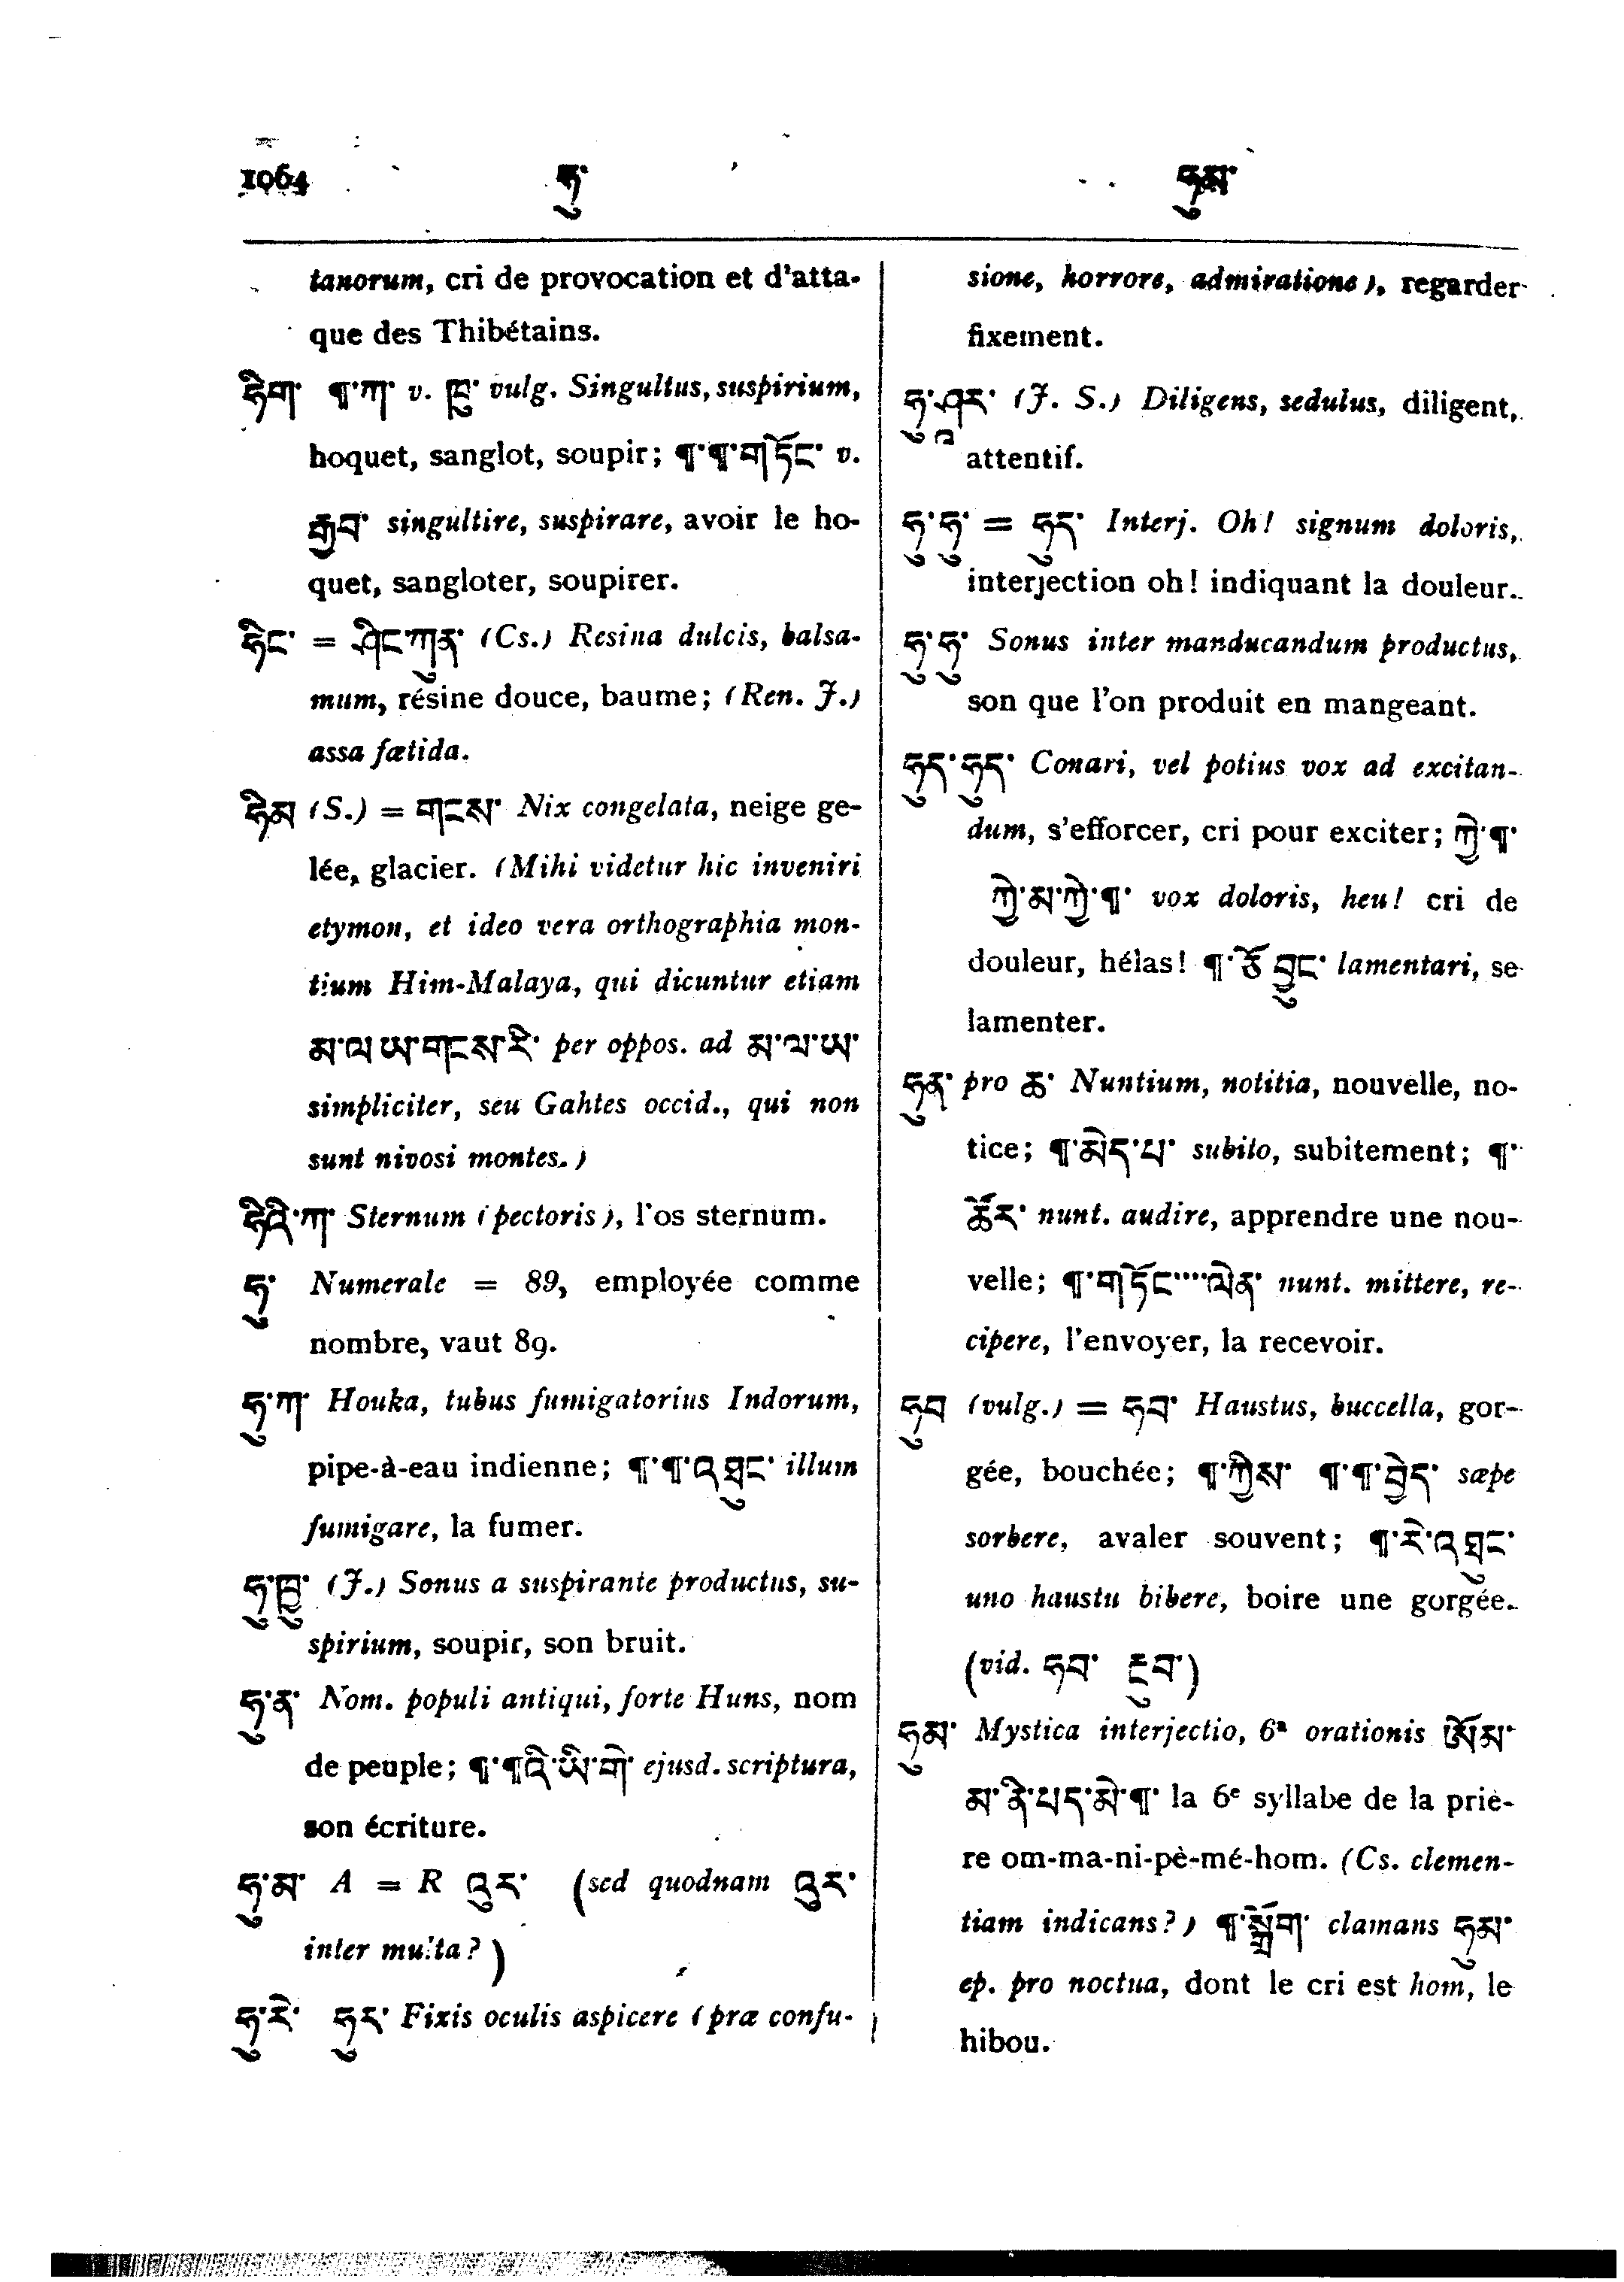 1064 ཧུ་ ཧུམ་
tanorum, cri de provocation et d'atta-
que des Thibétains.
ཧིག་ ¶་ཀ་ v. ཁུ་ vulg. Singultus, suspirium,
hoquet, sanglot, soupir; ¶་¶་གཏོང་ v.
རྒྱབ་ singultire, suspirare, avoir le ho-
quet, sangloter, soupirer.
ཧིང་ = ཤིང་ཀུན་ (Cs.) Resina dulcis, balsa-
mum, résine douce, baume; (Ren. J.)
assa fœtida.
ཧིམ (S.) = གངས་ Nix congelata, neige ge-
lée, glacier. (Mihi videtur hic inveniri
etymon, et ideo vera orthographia mon-
tium Him-Malaya, qui dicuntur etiam
མ་ལ་ཡ་གངས་རི་ per oppos. ad མ་ལ་ཡ་
simpliciter, seu Gahtes occid., qui non
sunt nivosi montes.)
ཧིའི་ཀ་ Sternum (pectoris), l'os sternum.
ཧུ་ Numerale = 89, employée comme
nombre, vaut 89.
ཧུ་ཀ་ Houka, tubus fumigatorius Indorum,
pipe-à-eau indienne; ¶་¶་འཐུང་ illum
fumigare, la fumer.
ཧུ་ཁུ་ (J.) Sonus a suspirante productus, su-
spirium, soupir, son bruit.
ཧུ་ན་ Nom. populi antiqui, forte Huns, nom
de peuple; ¶་¶འི་ཡི་གེ་ ejusd. scriptura,
son écriture.
ཧུ་མ་ A = R འུར་ (sed quodnam འུར་
inter multa?)
ཧུ་རེ་ ཧུར་ Fixis oculis aspicere (præ confu-
sione, horrore, admiratione), regarder
fixement.
ཧུ་ཤར་ (J. S.) Diligens, sedulus, diligent,
attentif.
ཧུ་ཧུ་ = ཧུད་ Interj. Oh! signum doloris,
interjection oh! indiquant la douleur.
ཧུ་ཧུ་ Sonus inter manducandum productus,
son que l'on produit en mangeant.
ཧུད་ཧུད་ Conari, vel potius vox ad excitan-
dum, s'efforcer, cri pour exciter; ཀྱེ་¶་
ཀྱེ་མ་ཀྱེ་¶་ vox doloris, heu! cri de
douleur, hélas! ¶་ཅོ་བྱུང་ lamentari, se
lamenter.
ཧུན་ pro ཆ་ Nuntium, notitia, nouvelle, no-
tice; ¶་མེད་པ་ subito, subitement; ¶་
ཚོར་ nunt. audire, apprendre une nou-
velle; ¶་གཏོང་་་་་ལེན་ nunt. mittere, re-
cipere, l'envoyer, la recevoir.
ཧུབ (vulg.) = ཧབ་ Haustus, buccella, gor-
gée, bouchée; ¶་ཀྱིས་ ¶་¶་བྱེད་ sæpe
sorbere, avaler souvent; ¶་རེ་འཐུང་
uno haustu bibere, boire une gorgée.
(vid. ཧབ་ རྔུབ་)
ཧུམ་ Mystica interjectio, 6ª orationis ཨོམ་
མ་ནི་པད་མེ་¶་ la 6e syllabe de la priè-
re om-ma-ni-pè-mé-hom. (Cs. clemen-
tiam indicans?) ¶་སྒྲོག་ clamans ཧུམ་
ep. pro noctua, dont le cri est hom, le
hibou.